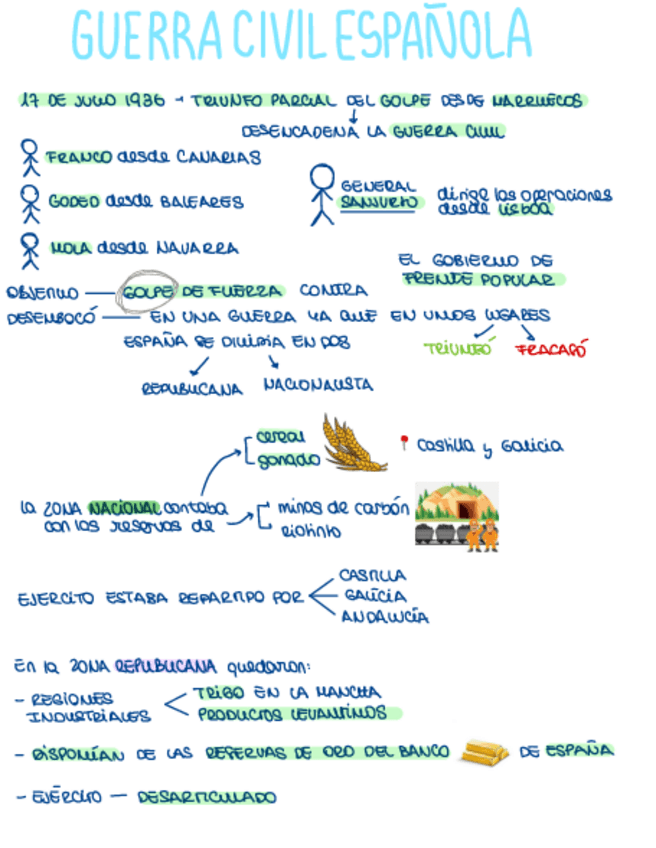 GUERRA CIVIL ESPAÑOLA
17 DE JULIO 1936 → TRIUNFO PARCIAL DEL GOLPE DESDE MARRUECOS
DESENCADENA LA GUERRA CIVIL
FRANCO desde CANARIAS
GODED desde BALEARES
MOLA desde NAVARRA
GENERAL
SANJURJO
dirige las operaciones
desde Lisboa
EL GOBIERNO DE
FRENTE POPULAR
OBJETIVO — GOLPE DE FUERZA CONTRA
DESEMBOCÓ — EN UNA GUERRA YA QUE EN UNOS LUGARES
TRIUNFÓ FRACASÓ
ESPAÑA SE DIVIDIA EN DOS
REPUBLICANA NACIONALISTA
cereal
ganado
Castilla y Galicia
la ZONA NACIONAL contaba
con las reservas de
minas de carbón
riotinto
EJERCITO ESTABA REPARTIDO POR
CASTILLA
GALICIA
ANDALUCÍA
En la ZONA REPUBLICANA quedaron:
- REGIONES
INDUSTRIALES
TRIGO EN LA MANCHA
PRODUCTOS LEVANTINOS
- DISPONÍAN DE LAS RESERVAS DE ORO DEL BANCO DE ESPAÑA
- EJÉRCITO — DESARTICULADO